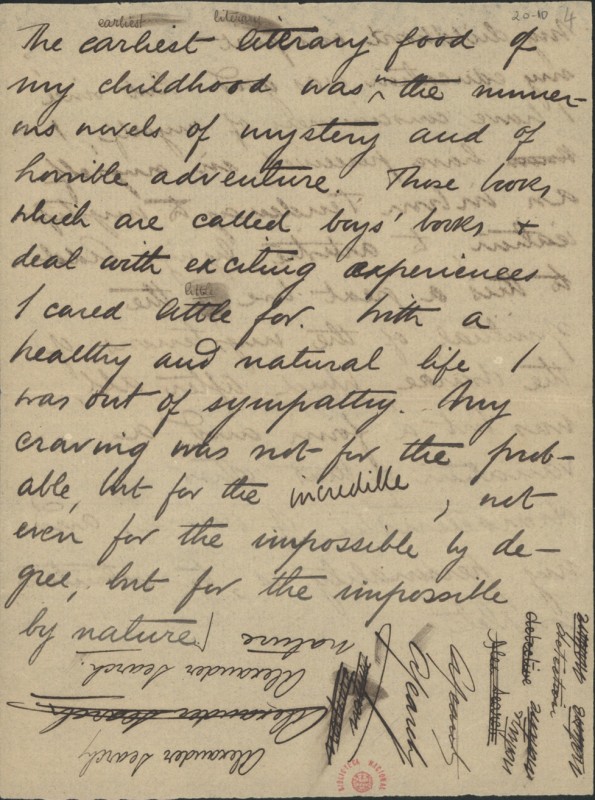 earliest literary 20-10 .4
The earliest literary food of
my childhood was in the numer-
ous novels of mystery and of
horrible adventure. Those books
which are called boys' books +
deal with exciting experiences
little
I cared little for. With a
healthy and natural life I
was out of sympathy. My
craving was not for the prob-
able, but for the incredible, not
even for the impossible by de-
gree, but for the impossible
by nature
nature
Alexander Search.
Alexander Search
Alexander Search
Search
Search
Alex Search
detective
BIBLIOTECA NACIONAL